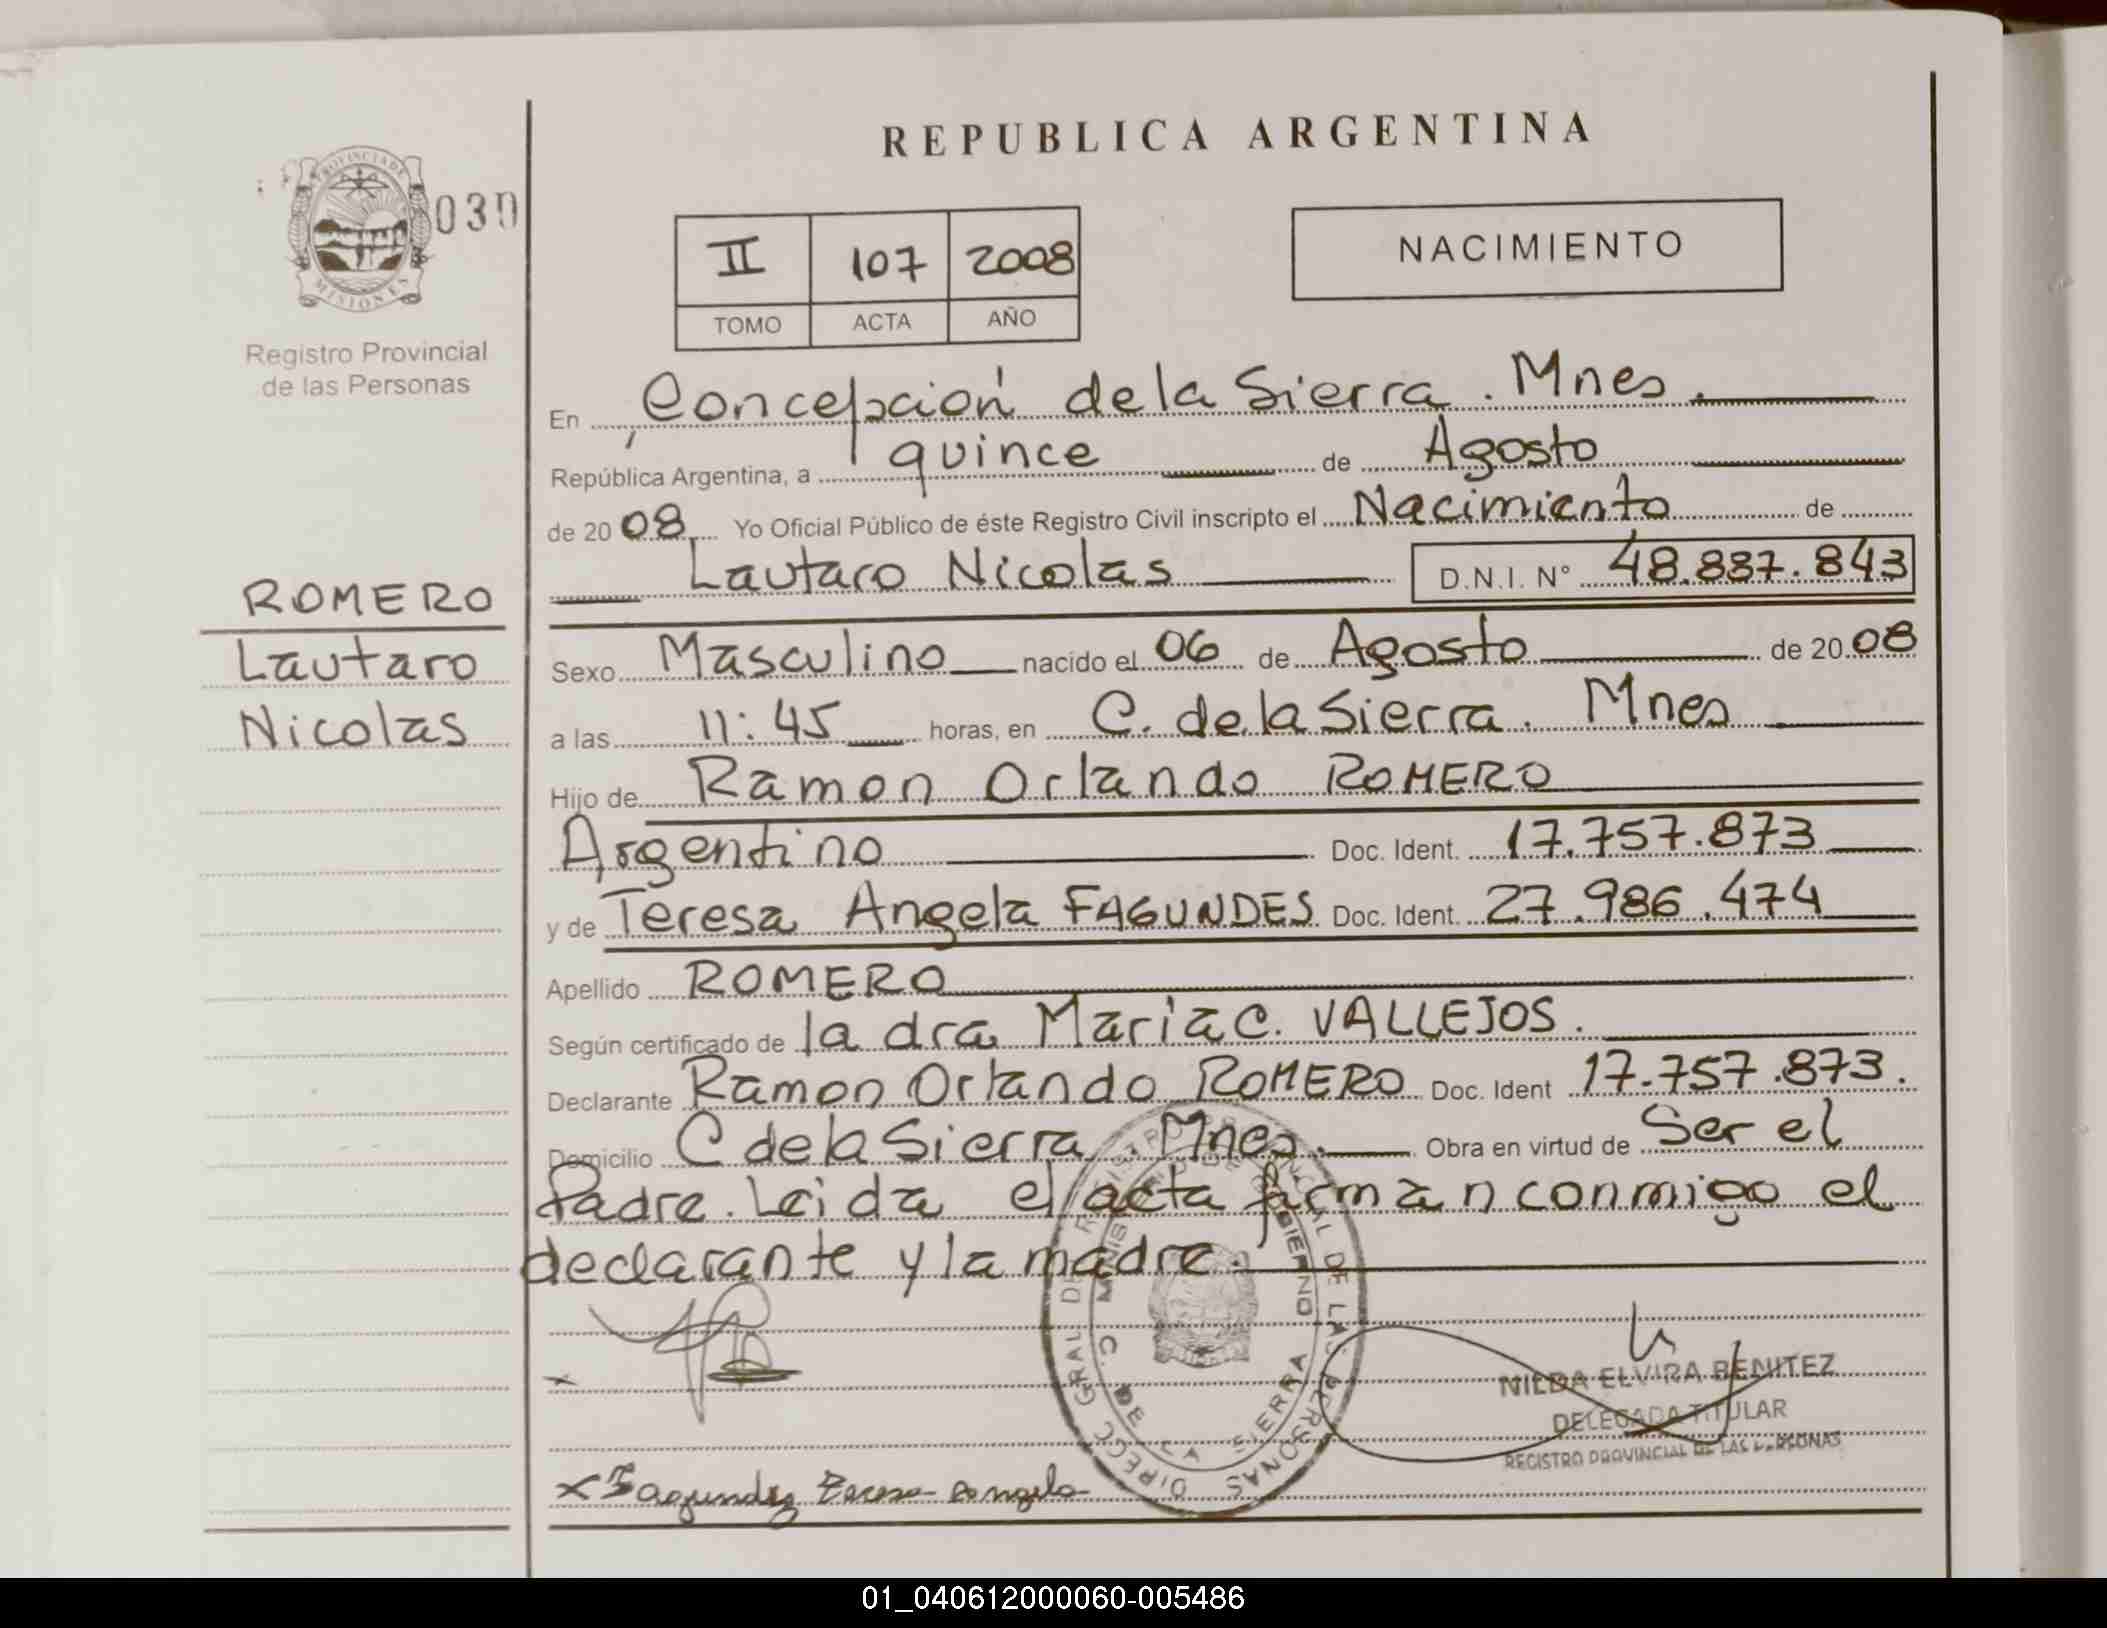 REPUBLICA ARGENTINA
PROVINCIA DE
MISIONES
030
Registro Provincial
de las Personas
II 107 2008
TOMO ACTA AÑO
NACIMIENTO
En Concepción de la Sierra. Mnes.
República Argentina, a quince de Agosto
de 2008 Yo Oficial Público de éste Registro Civil inscripto el Nacimiento de
Lautaro Nicolas D.N.I. N° 48.887.843
ROMERO
Lautaro
Nicolas
Sexo Masculino nacido el 06 de Agosto de 2008
a las 11:45 horas, en C. de la Sierra. Mnes
Hijo de Ramon Orlando ROMERO
Argentino Doc. Ident. 17.757.873
y de Teresa Angela FAGUNDES Doc. Ident. 27.986.474
Apellido ROMERO
Según certificado de la dra Maria C. VALLEJOS.
Declarante Ramon Orlando ROMERO Doc. Ident 17.757.873.
Domicilio C de la Sierra. Mnes. Obra en virtud de Ser el
Padre. Leida el acta firman conmigo el
declarante y la madre.
NILDA ELVIRA BENITEZ
DELEGADA TITULAR
REGISTRO PROVINCIAL DE LAS PERSONAS
x Fagundez Teresa Angela
DIRECC GRAL DE REGISTRO PROVINCIAL DE LAS PERSONAS
MINIS DE GOBIERNO
C. DE LA SIERRA
01_040612000060-005486